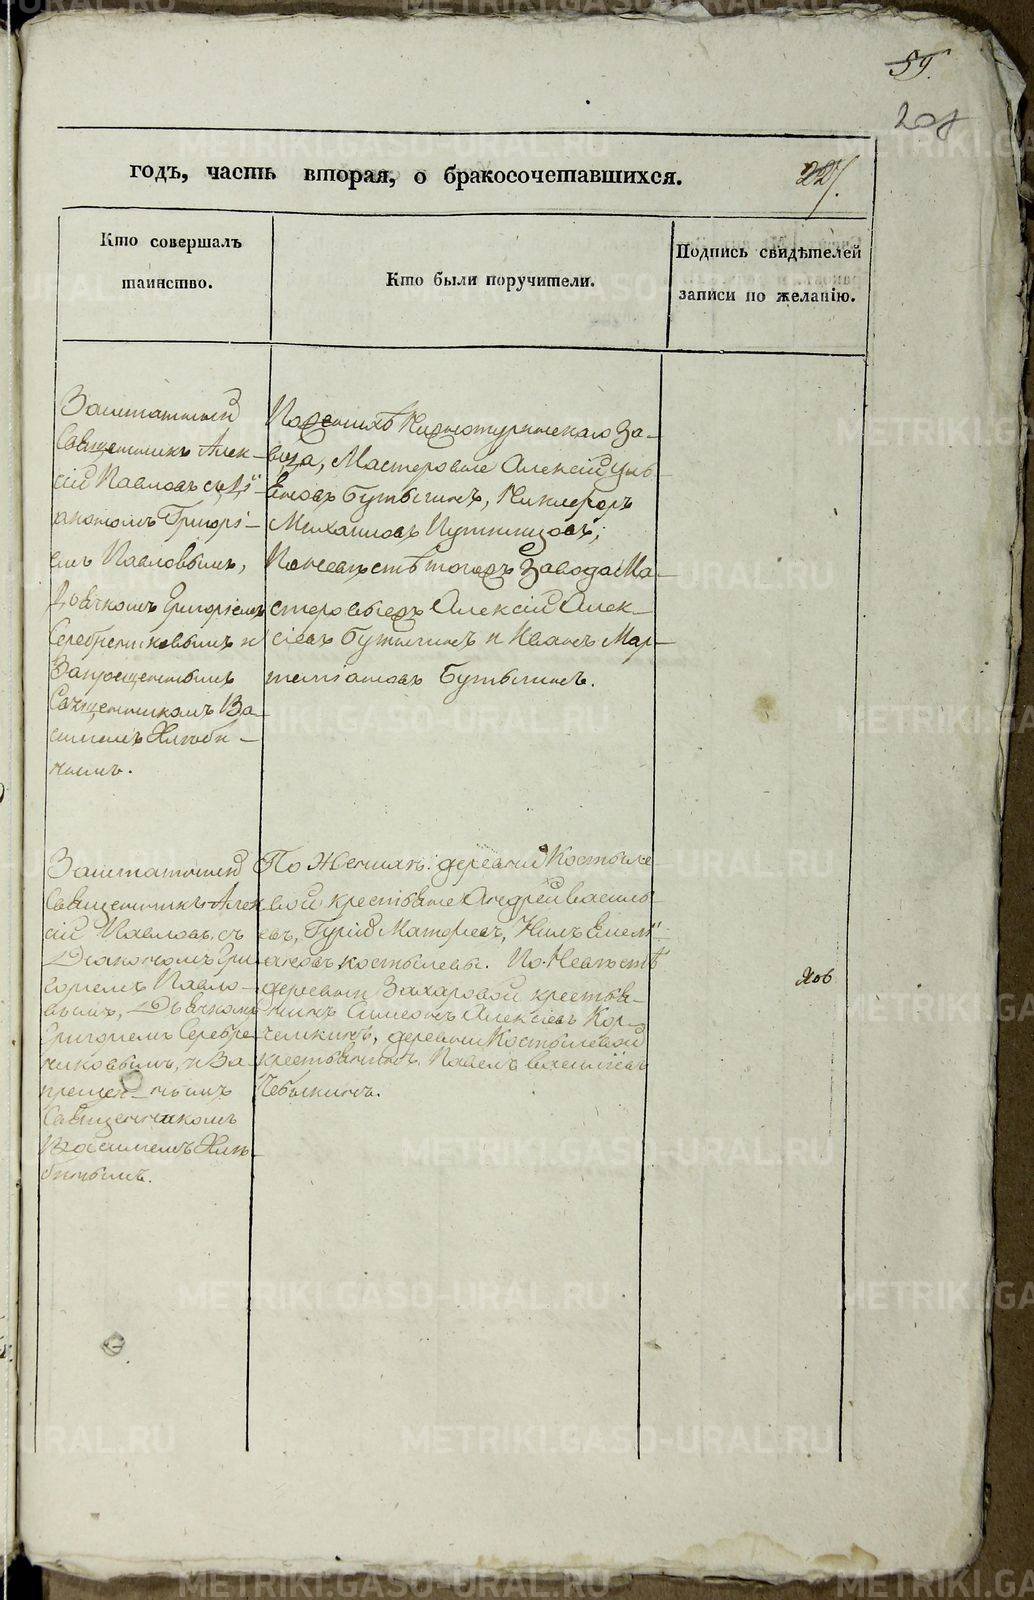 59.
208
годъ, часть вторая, о бракосочетавшихся.
227.
Кто совершалъ
таинство.
Кто были поручители.
Подпись свидѣтелей
записи по желанію.
Заштатный
Священникъ Алек-
сій Павловъ съ Ді-
акономъ Григорі-
емъ Павловымъ,
Дьячкомъ Григоріемъ
Серебрениковымъ и
Запрещеннымъ
Священникомъ Ва-
силіемъ Хлѣби-
нымъ.
По Женихѣ Нижнотуринскаго За-
вода, Мастеровые Алексій
Бутыгинъ, Никифоръ
Михаиловъ Путинцовъ;
По невѣстѣ тогожъ Завода Ма-
стеровыежъ Алексій Алек-
сіевъ Бутыгинъ и Иванъ Мар-
темьановъ Бутыгинъ.
Заштатный
Священникъ Алек
сій Павловъ, съ
Діакономъ Гри
горіемъ Павло-
вымъ, Дьячкомъ
Григоріемъ Серебре
никовымъ, и За-
прещен-нымъ
Священникомъ
Василіемъ Хлѣ-
бинымъ.
По Женихѣ: деревни Костыле
вой крестьяне Андрей василь
евъ, Гурій Матфеевъ, Нилъ Емелі
ановъ костылевы. По Невѣстѣ
деревни Захаровой крестья-
нинъ Симеонъ Алексіевъ Кор-
челкинъ, деревни Костылевой
крестьянинъ Павелъ васильевъ
Чебыкинъ.
ховъ
METRIKI.GASO-URAL.RU